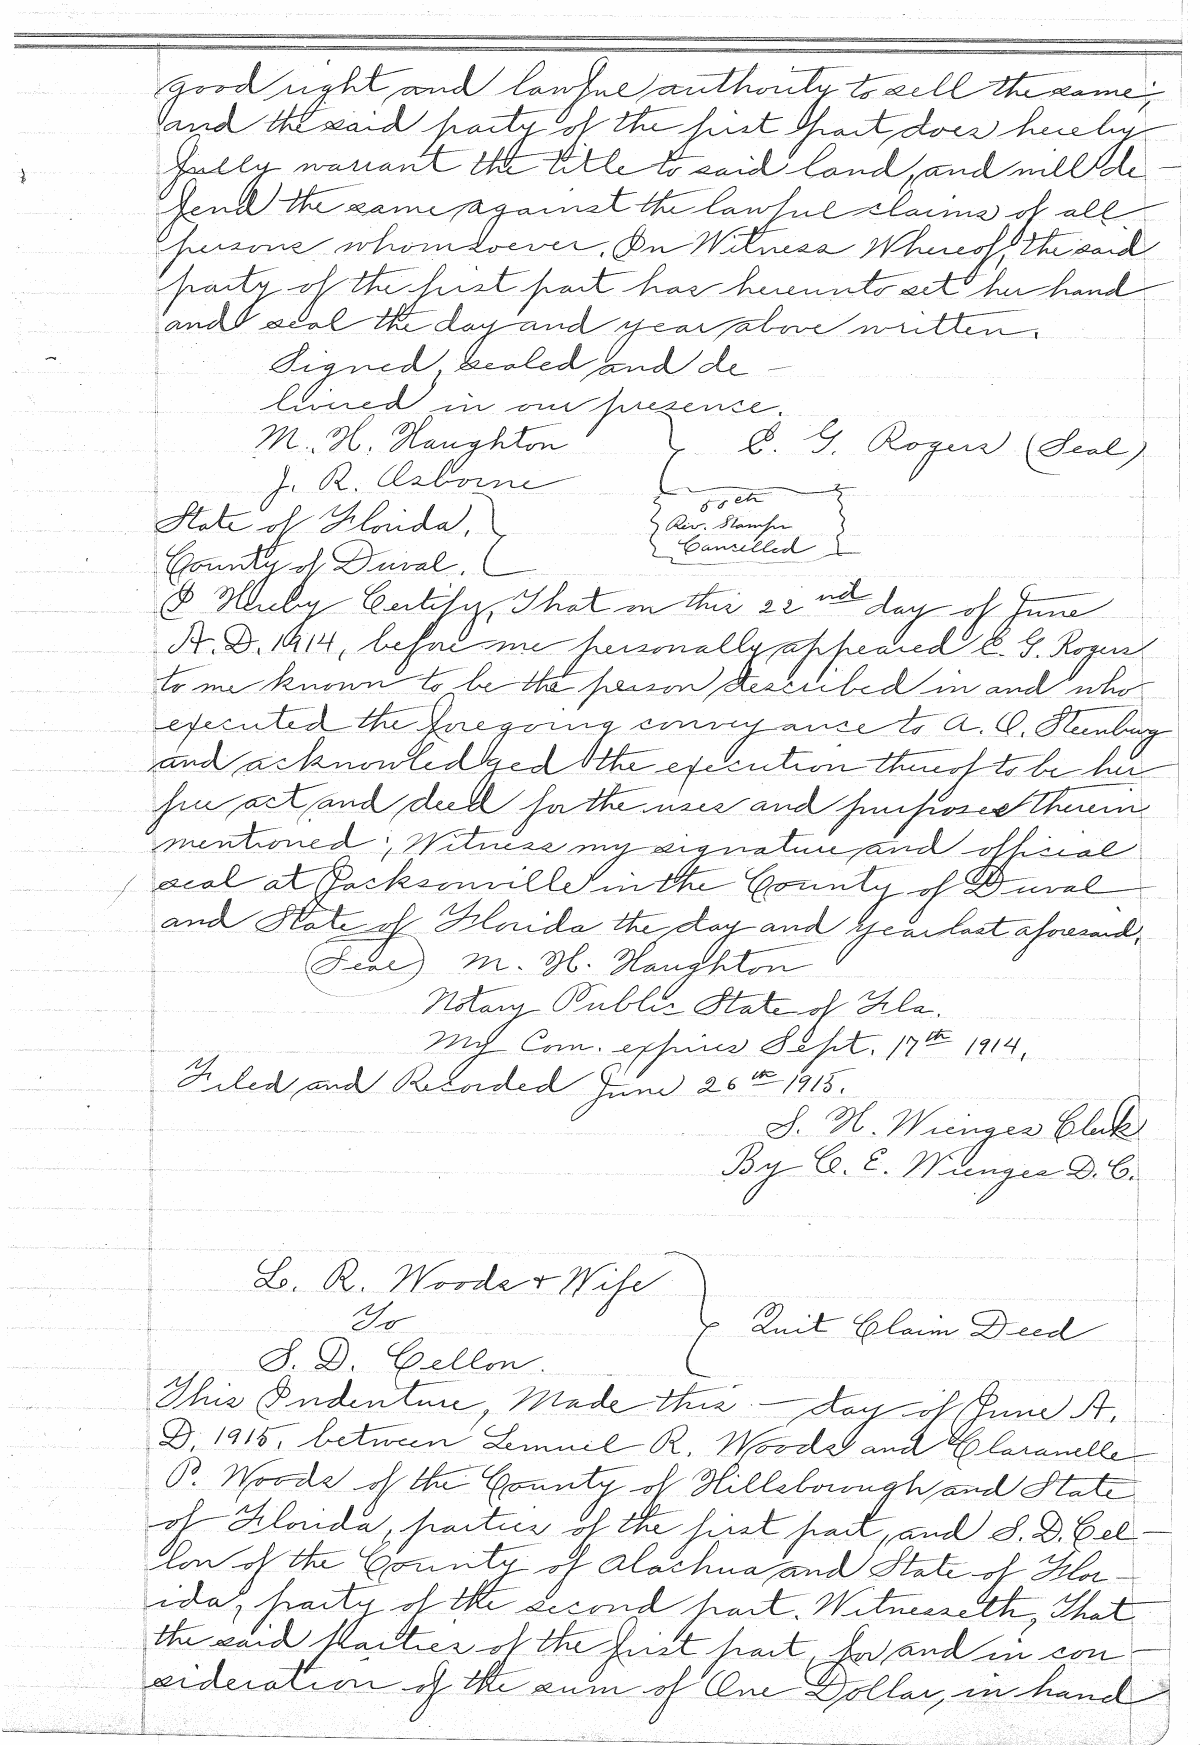 good right and lawful authority to sell the same;
and the said party of the first part does hereby
fully warrant the title to said land, and will de-
fend the same against the lawful claims of all
persons whomsoever. In Witness Whereof, the said
party of the first part has hereunto set her hand
and seal the day and year above written.
Signed, sealed and de-
livered in our presence.
M. H. Haughton
E. G. Rogers (Seal)
J. R. Osborne
State of Florida,
County of Duval.
Rev. Stamps
Cancelled
I Hereby Certify, That on this 22nd day of June
A. D. 1914, before me personally appeared E. G. Rogers
to me known to be the person described in and who
executed the foregoing conveyance to A. O. Steenburg
and acknowledged the execution thereof to be her
free act and deed for the uses and purposes therein
mentioned; Witness my signature and official
seal at Jacksonville in the County of Duval
and State of Florida the day and year last aforesaid.
(Seal) M. H. Haughton
Notary Public State of Fla.
My Com. expires Sept. 17th 1914,
Filed and Recorded June 26th 1915.
S. H. Wienges Clerk
By C. E. Wienges D. C.
L. R. Woods + Wife
To
Quit Claim Deed
S. D. Cellon.
This Indenture, Made this - day of June A.
D. 1915, between Lemuel R. Woods and Claranelle
P. Woods of the County of Hillsborough and State
of Florida, parties of the first part, and S. D. Cel-
lon of the County of Alachua and State of Flor-
ida, party of the second part. Witnesseth, That
the said Parties of the first part, for and in con-
sideration of the sum of One Dollar, in hand